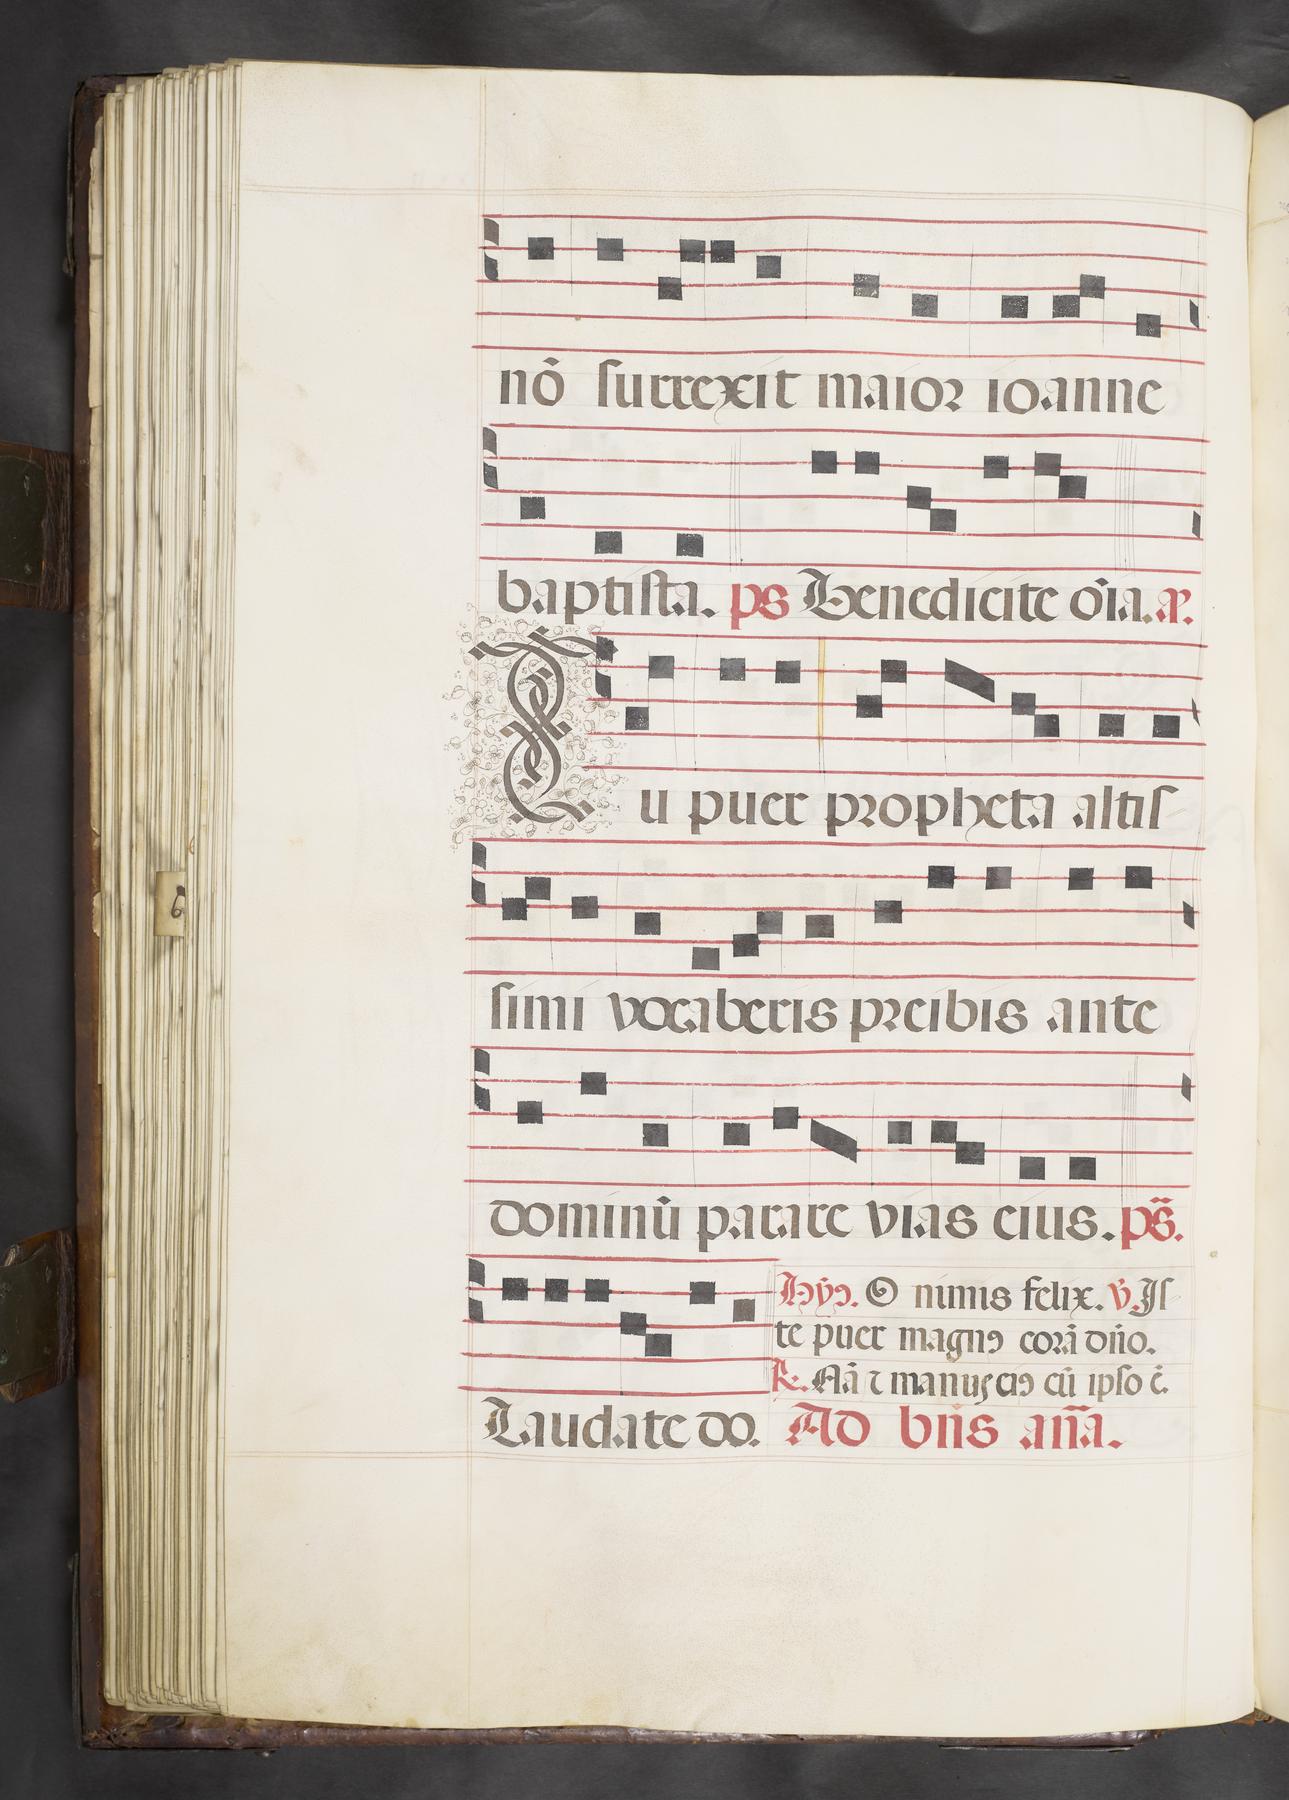 nõ surrexit maior ioanne
baptista. ps Benedicite oı̃a. añ.
Tu puer propheta altis
simi vocaberis preibis ante
6
dominũ parare vias eius. ps̃.
Hyɔ̃. O nimis felix. ṽ. Is
te puer magnꝯ corã dño.
℟. Nã ⁊ manus eiꝯ cũ ipso ẽ.
Laudate do. Ad bñs aña.